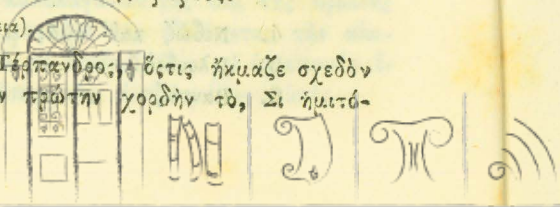 εια).
Τέρπανδρος, ὅστις ἤκμαζε σχεδὸν
ν πρώτην χορδὴν τὸ, Σι ἡμιτό-